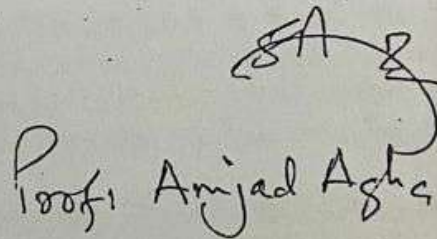 Prof. Amjad Agha